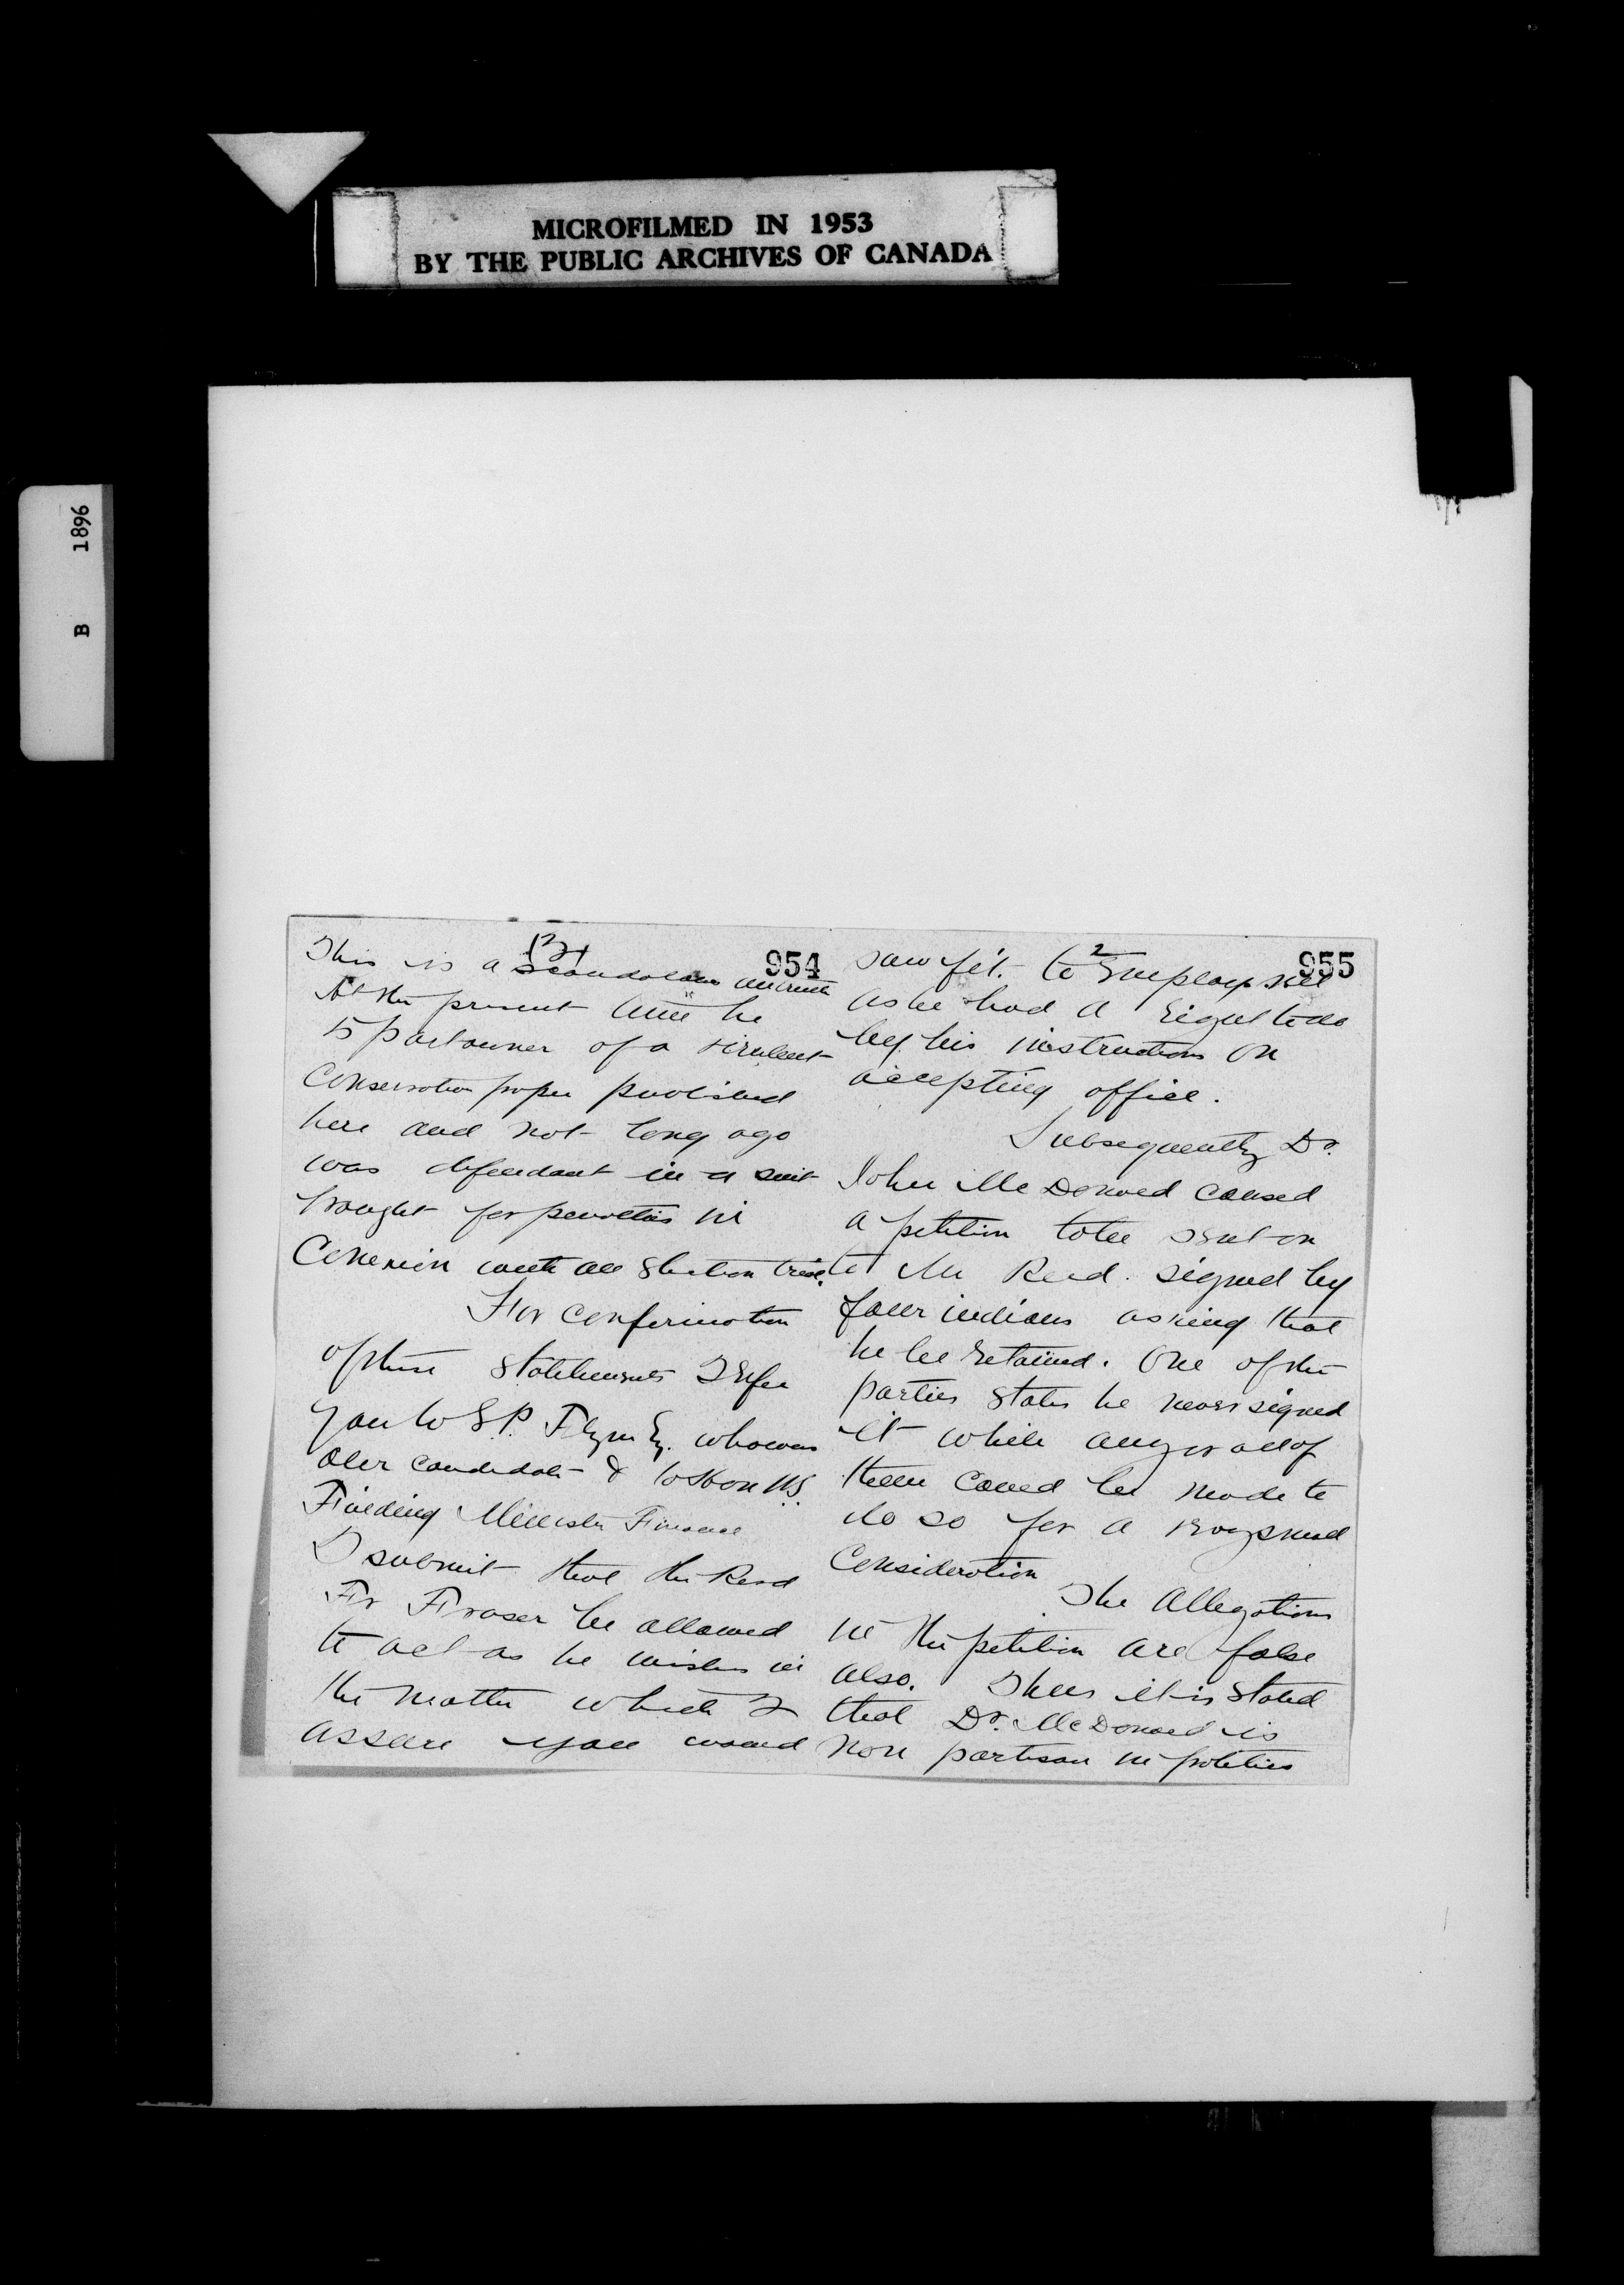 MICROFILMED IN 1953
BY THE PUBLIC ARCHIVES OF CANADA
B 1896
954
(3)
This is a scandalous untruth
At the present time he
is part owner of a virulent
Conservative paper published
here and not long ago
was defendant in a suit
brought for penalties in
Conexion with an Election trial.
For confirmation
of these statements I refer
you to E.P. Flynn Esq. who was
our candidate & to Hon W.S.
Fielding Minister Finance
I submit that the Revd
Fr Fraser be allowed
to act as he wishes in
the matter which I
assure you would
955
2
saw fit to Employ me
as he had a right to do
by his instructions on
accepting office.
Subsequently Dr.
John McDonald caused
a petition to be sent on
to Mr Reed. signed by
four indians asking that
he be retained. One of the
parties states he never signed
it while any or all of
them could be made to
do so for a
Consideration
The Allegations
in the petition are false
also. Thus it is stated
that Dr. McDonald is
non partisan in politics